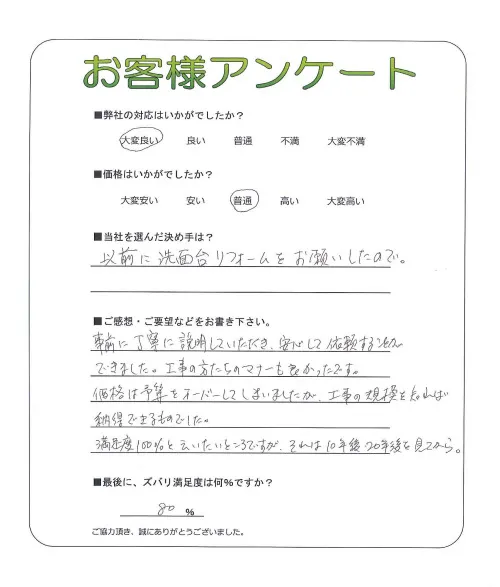 お客様アンケート
■弊社の対応はいかがでしたか？
大変良い 良い 普通 不満 大変不満
■価格はいかがでしたか？
大変安い 安い 普通 高い 大変高い
■当社を選んだ決め手は？
以前に洗面台リフォームをお願いしたので。
■ご感想・ご要望などをお書き下さい。
事前に丁寧に説明していただき、安心して依頼することが
できました。工事の方たちのマナーも良かったです。
価格は予算をオーバーしてしまいましたが、工事の規模を知れば
納得できるものでした。
満足度100%と言いたいところですが、それは10年後20年後を見てから。
■最後に、ズバリ満足度は何％ですか？
80 %
ご協力頂き、誠にありがとうございました。